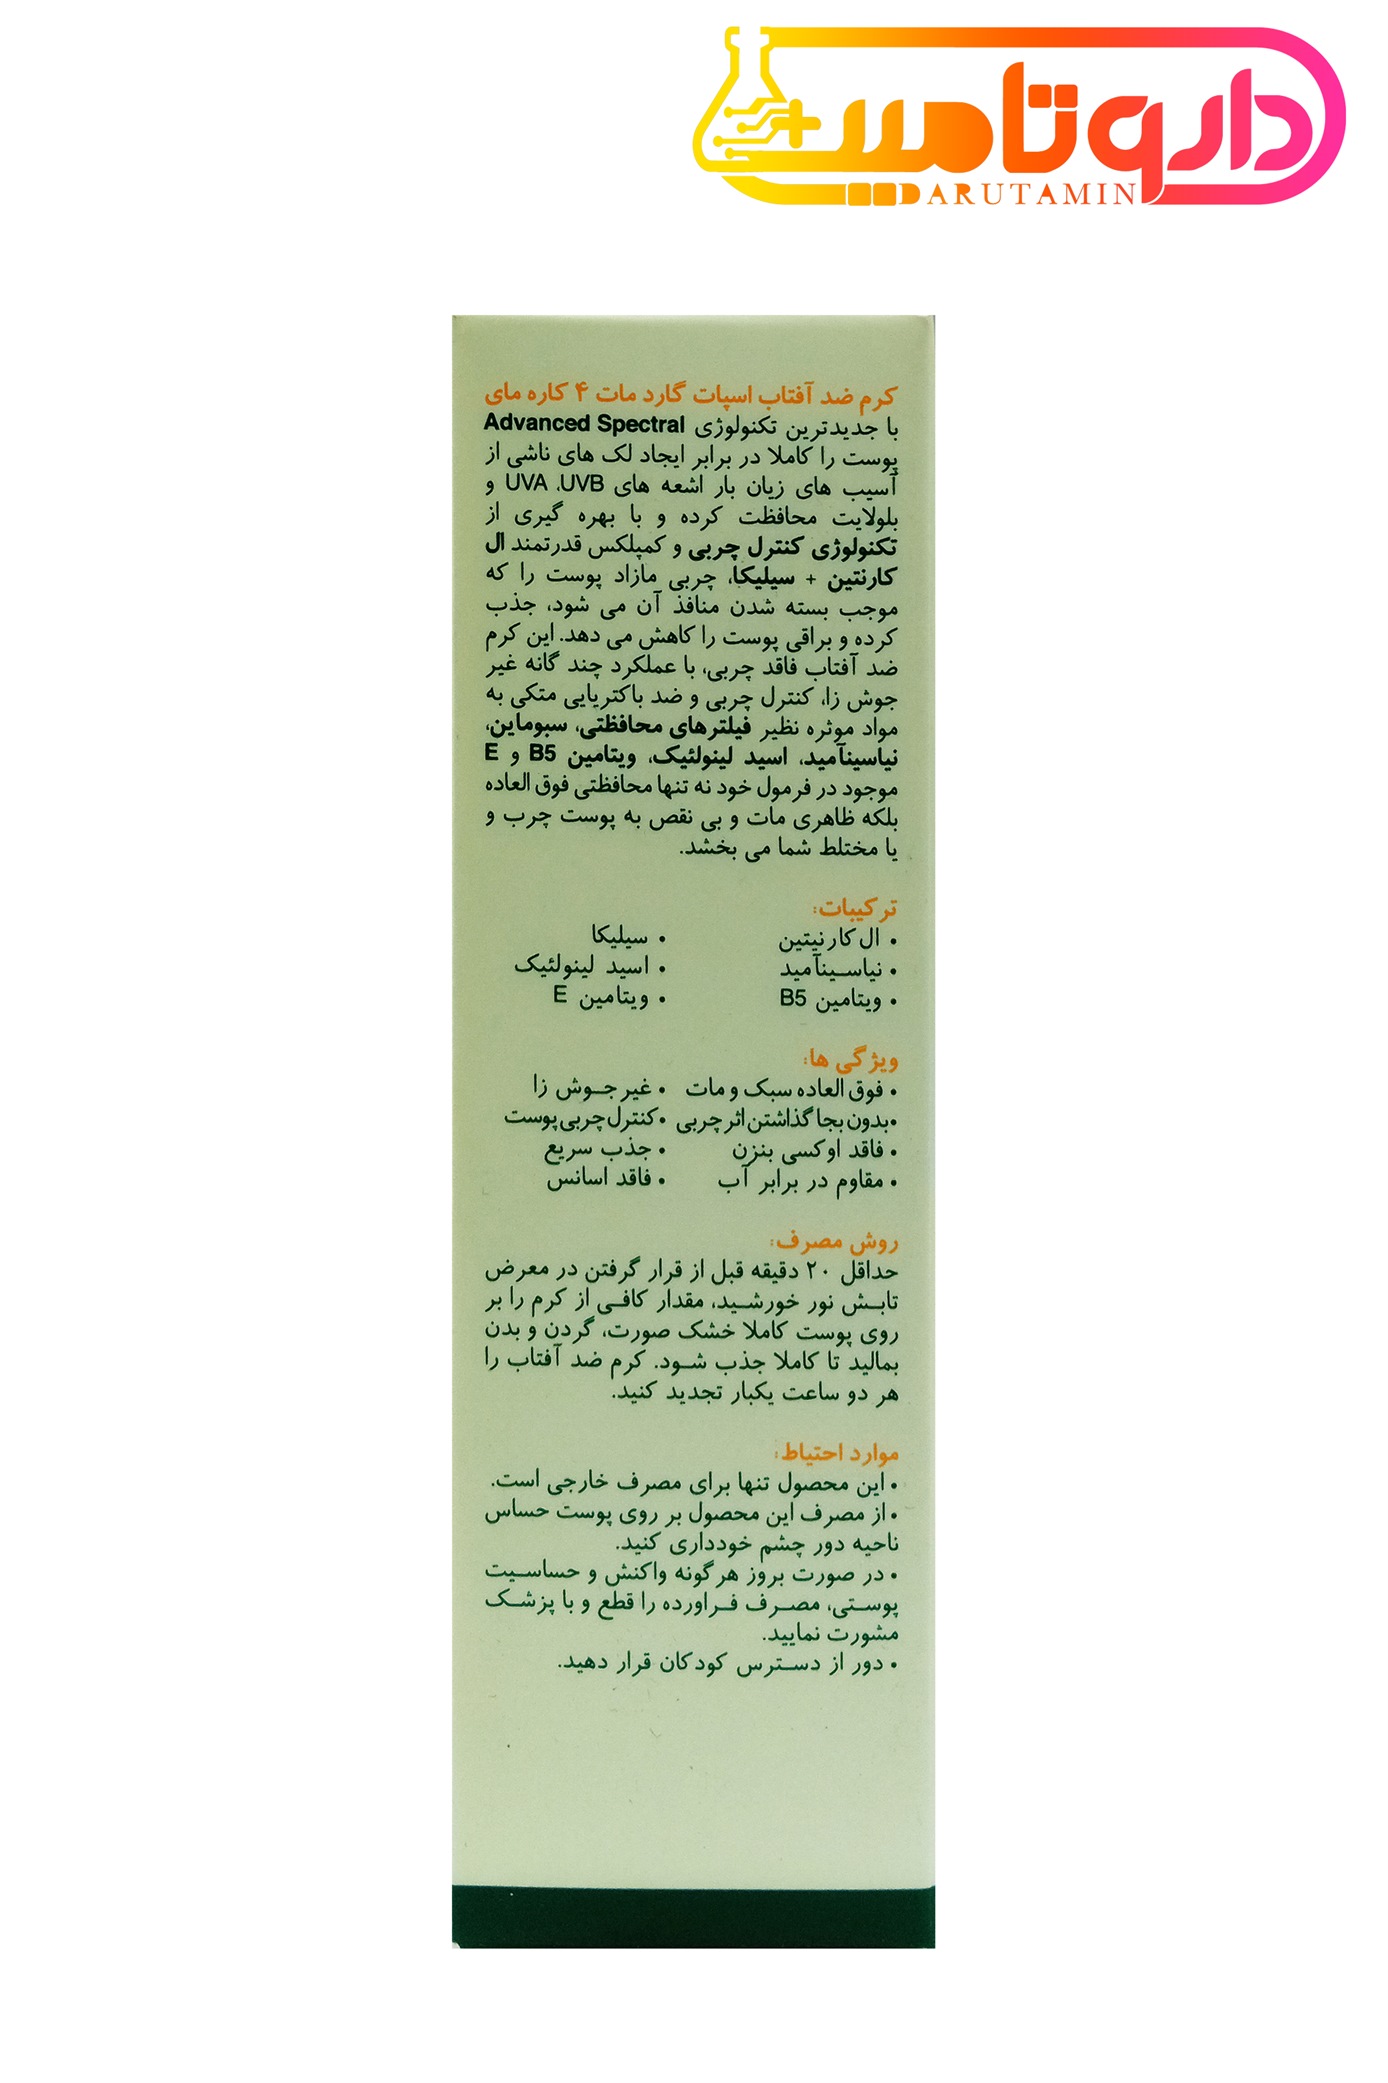 داروتامین
DARUTAMIN
کرم ضد آفتاب اسپات گارد مات ۴ کاره مای
با جدیدترین تکنولوژی Advanced Spectral
پوست را کاملا در برابر ایجاد لک های ناشی از
آسیب های زیان بار اشعه های UVA ،UVB و
بلولایت محافظت کرده و با بهره گیری از
تکنولوژی کنترل چربی و کمپلکس قدرتمند ال
کارنتین + سیلیکا، چربی مازاد پوست را که
موجب بسته شدن منافذ آن می شود، جذب
کرده و براقی پوست را کاهش می دهد. این کرم
ضد آفتاب فاقد چربی، با عملکرد چند گانه غیر
جوش زا، کنترل چربی و ضد باکتریایی متکی به
مواد موثره نظیر فیلترهای محافظتی، سبوماین،
نیاسینآمید، اسید لینولئیک، ویتامین B5 و E
موجود در فرمول خود نه تنها محافظتی فوق العاده
بلکه ظاهری مات و بی نقص به پوست چرب و
یا مختلط شما می بخشد.
ترکیبات:
• ال کارنیتین • سیلیکا
• نیاسینآمید • اسید لینولئیک
• ویتامین B5 • ویتامین E
ویژگی ها:
• فوق العاده سبک و مات • غیر جوش زا
• بدون بجا گذاشتن اثر چربی • کنترل چربی پوست
• فاقد اوکسی بنزن • جذب سریع
• مقاوم در برابر آب • فاقد اسانس
روش مصرف:
حداقل ۲۰ دقیقه قبل از قرار گرفتن در معرض
تابش نور خورشید، مقدار کافی از کرم را بر
روی پوست کاملا خشک صورت، گردن و بدن
بمالید تا کاملا جذب شود. کرم ضد آفتاب را
هر دو ساعت یکبار تجدید کنید.
موارد احتیاط:
• این محصول تنها برای مصرف خارجی است.
• از مصرف این محصول بر روی پوست حساس
ناحیه دور چشم خودداری کنید.
• در صورت بروز هرگونه واکنش و حساسیت
پوستی، مصرف فراورده را قطع و با پزشک
مشورت نمایید.
• دور از دسترس کودکان قرار دهید.